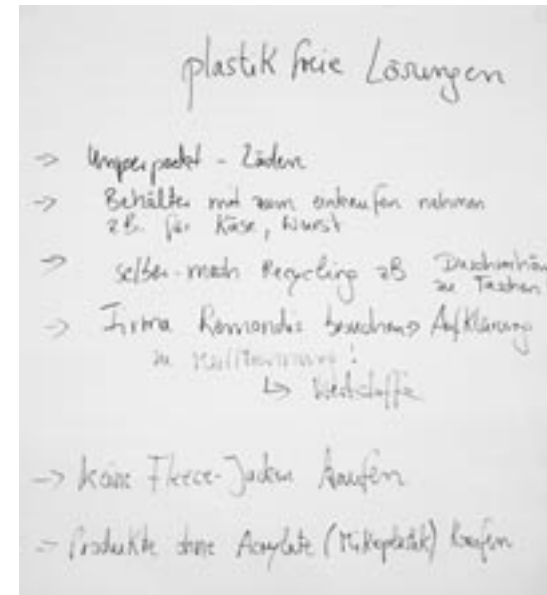 plastik freie Lösungen
-> Unverpackt - Läden
-> Behälter mit zum einkaufen nehmen
z.B. für Käse, Wurst
-> selber-mach Recycling zB
zu Taschen
-> Firma Remondis besuchen -> Aufklärung
zu Mülltrennung!
↳ Wertstoffe
-> keine Fleece-Jacken kaufen
-> Produkte ohne Acrylate (Mikroplastik) kaufen